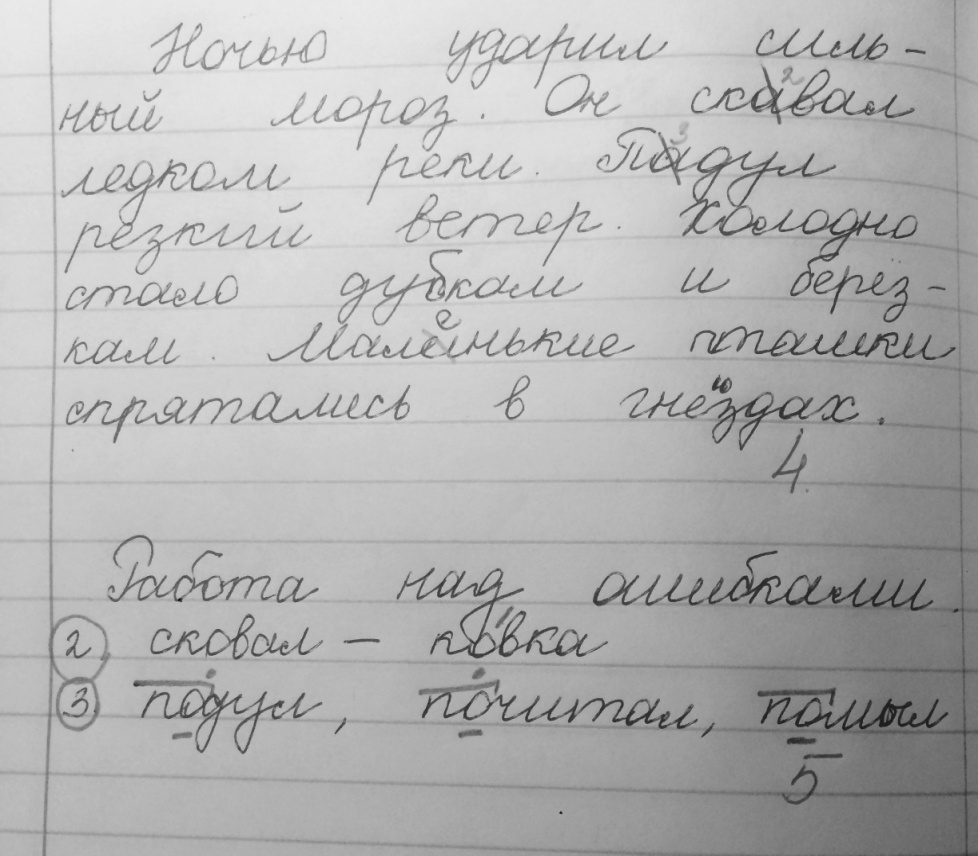 Ночью ударил силь-
ный мороз. Он скавал
ледком реки. Падул
резкий ветер. Холодно
стало дубкам и берёз-
кам. Маленькие пташки
спрятались в гнёздах.
4
Работа над ошибками.
2 сковал – ковка
3 подул, почитал, помыл
5